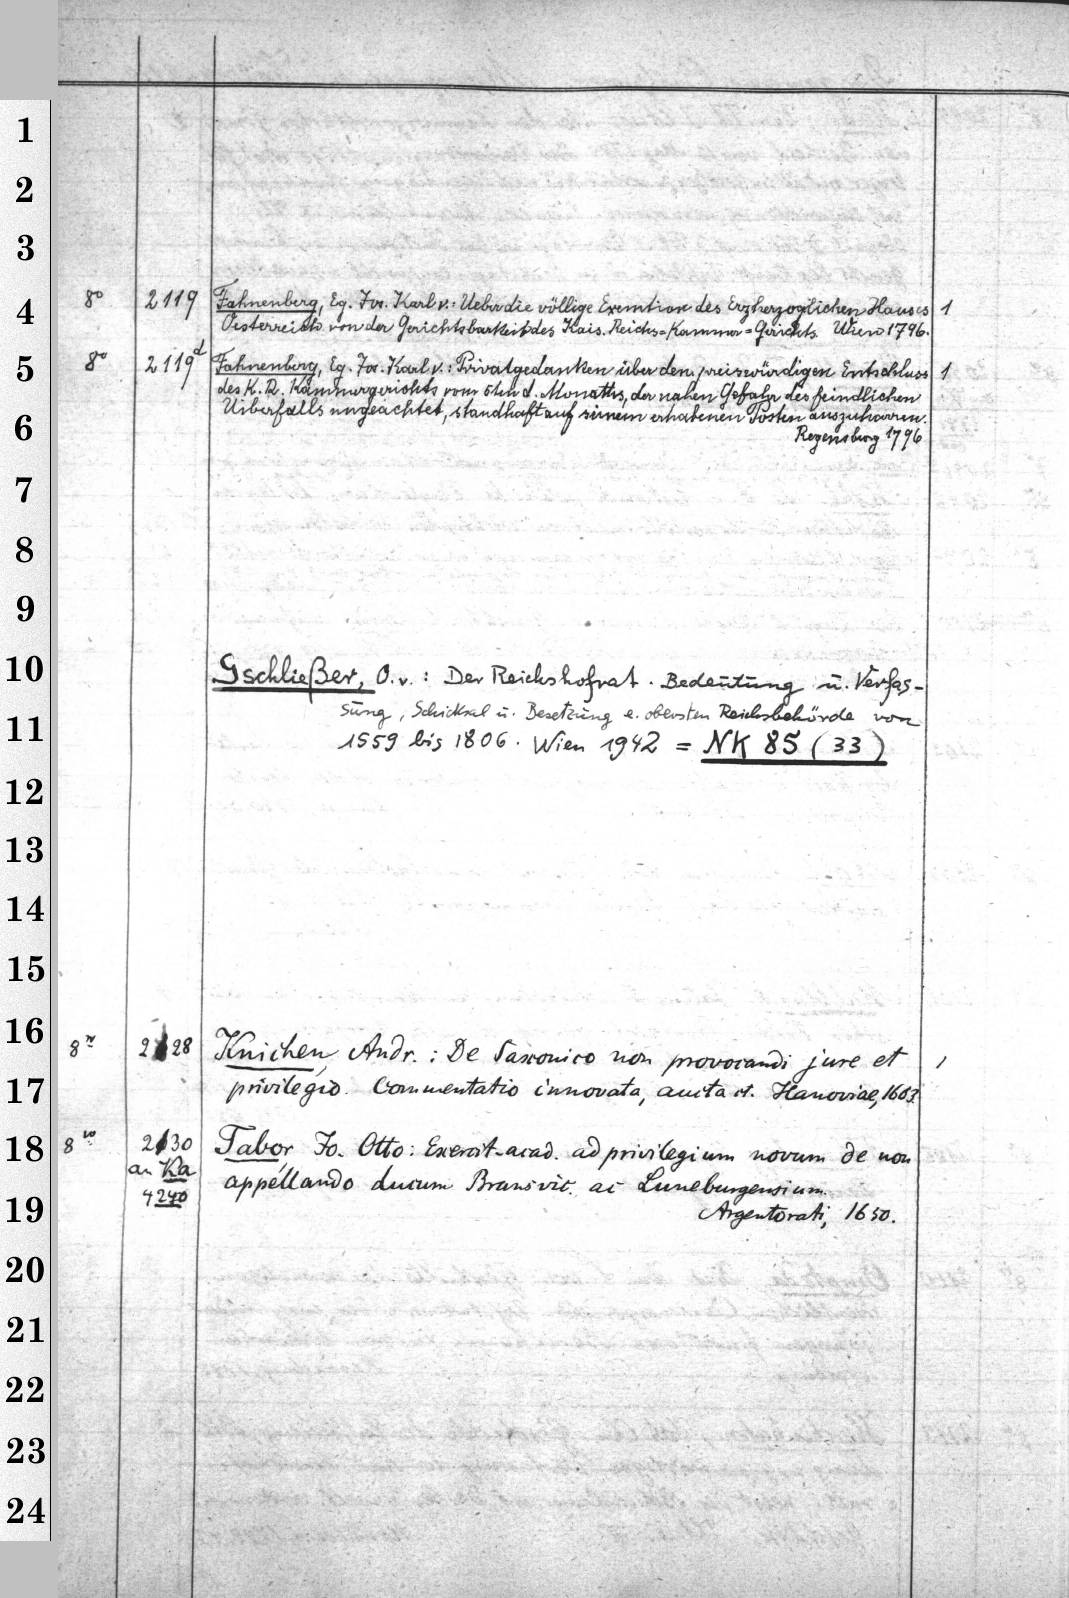 1
2
3
4
8° 2119 Fahnenberg, Eg. Jos. Karl v.: Ueber die völlige Exemtion des Erzherzoglichen Hauses 1
Oesterreich von der Gerichtsbarkeit des Kais. Reichs=Kammer=Gerichts. Wien 1796.
5
8° 2119d Fahnenberg, Eg. Jos. Karl v.: Privatgedanken über den preiswürdigen Entschluss 1
des K. R. Kammergerichts vom 5ten d. Monaths, der nahen Gefahr des feindlichen
6
Ueberfalls ungeachtet, standhaft auf seinem erhabenen Posten auszuharren.
Regensburg 1796
7
8
9
10
Gschließer, O. v.: Der Reichshofrat. Bedeutung u. Verfas-
11
sung, Schicksal u. Besetzung e. obersten Reichsbehörde von
1559 bis 1806. Wien 1942 = NK 85 (33)
12
13
14
15
16
8° 2128 Knichen, Andr.: De Saxonico non provocandi jure et 1
17
privilegio. Commentatio innovata, aucta et. Hanoviae, 1603.
18
8vo 2130 Tabor Jo. Otto: Exercit. acad. ad privilegium novum de non
an Ka
appellando ducum Brunsvic. ac Luneburgensium.
4240
19
Argentorati, 1650.
20
21
22
23
24